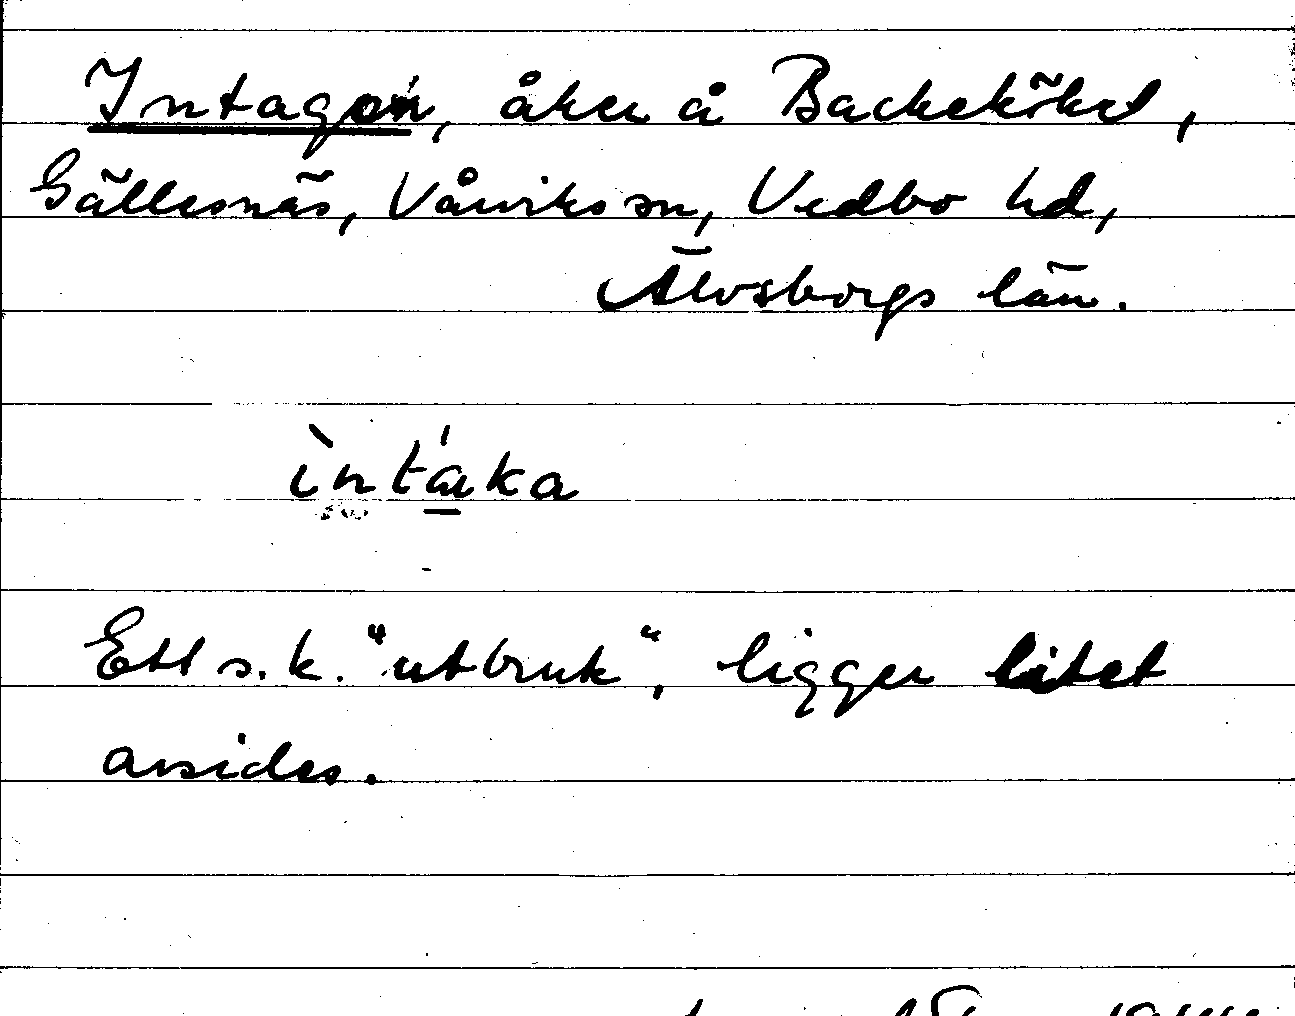 Intagen, åker å Backekökel,
Gällesnäs, Vårviks sn, Vedbo hd,
Älvsborgs län.
ìntáka
Ett s.k. "utbruk", ligger litet
avsides.